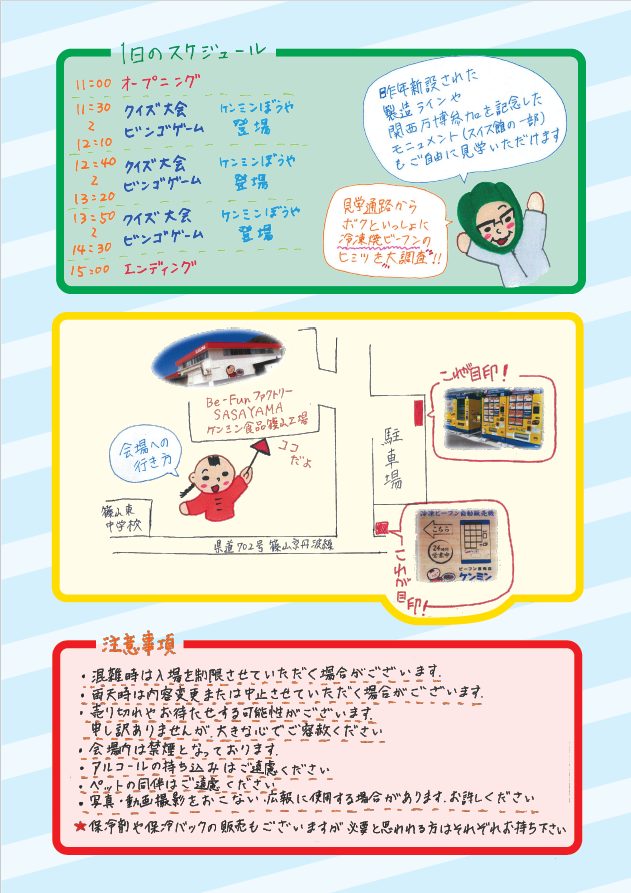 1日のスケジュール
11:00 オープニング
11:30 クイズ大会 ケンミンぼうや
〜 ビンゴゲーム 登場
12:10
12:40 クイズ大会 ケンミンぼうや
〜 ビンゴゲーム 登場
13:20
13:50 クイズ大会 ケンミンぼうや
〜 ビンゴゲーム 登場
14:30
15:00 エンディング
昨年新設された
製造ラインや
関西万博参加を記念した
モニュメント(スイス館の一部)
もご自由に見学いただけます
見学通路から
ボクといっしょに
冷凍焼ビーフンの
ヒミツを"大調査"!!
Be-Funファクトリー
SASAYAMA
ケンミン食品篠山工場
会場への
行き方
ココ
だよ
篠山東
中学校
県道702号 篠山京丹波線
駐車場
これが目印!
冷凍ビーフン自動販売機
こちら
24時間
営業中
ビーフン専門店
ケンミン
これが目印!
注意事項
・混雑時は入場を制限させていただく場合がございます.
・雨天時は内容変更または中止させていただく場合がございます.
・売り切れやお待たせする可能性がございます.
申し訳ありませんが、大きな心でご容赦ください
・会場内は禁煙となっております.
・アルコールの持ち込みはご遠慮ください
・ペットの同伴はご遠慮ください
・写真・動画撮影をおこない広報に使用する場合があります.お許しください
★保冷剤や保冷バックの販売もございますが必要と思われる方はそれぞれお持ち下さい